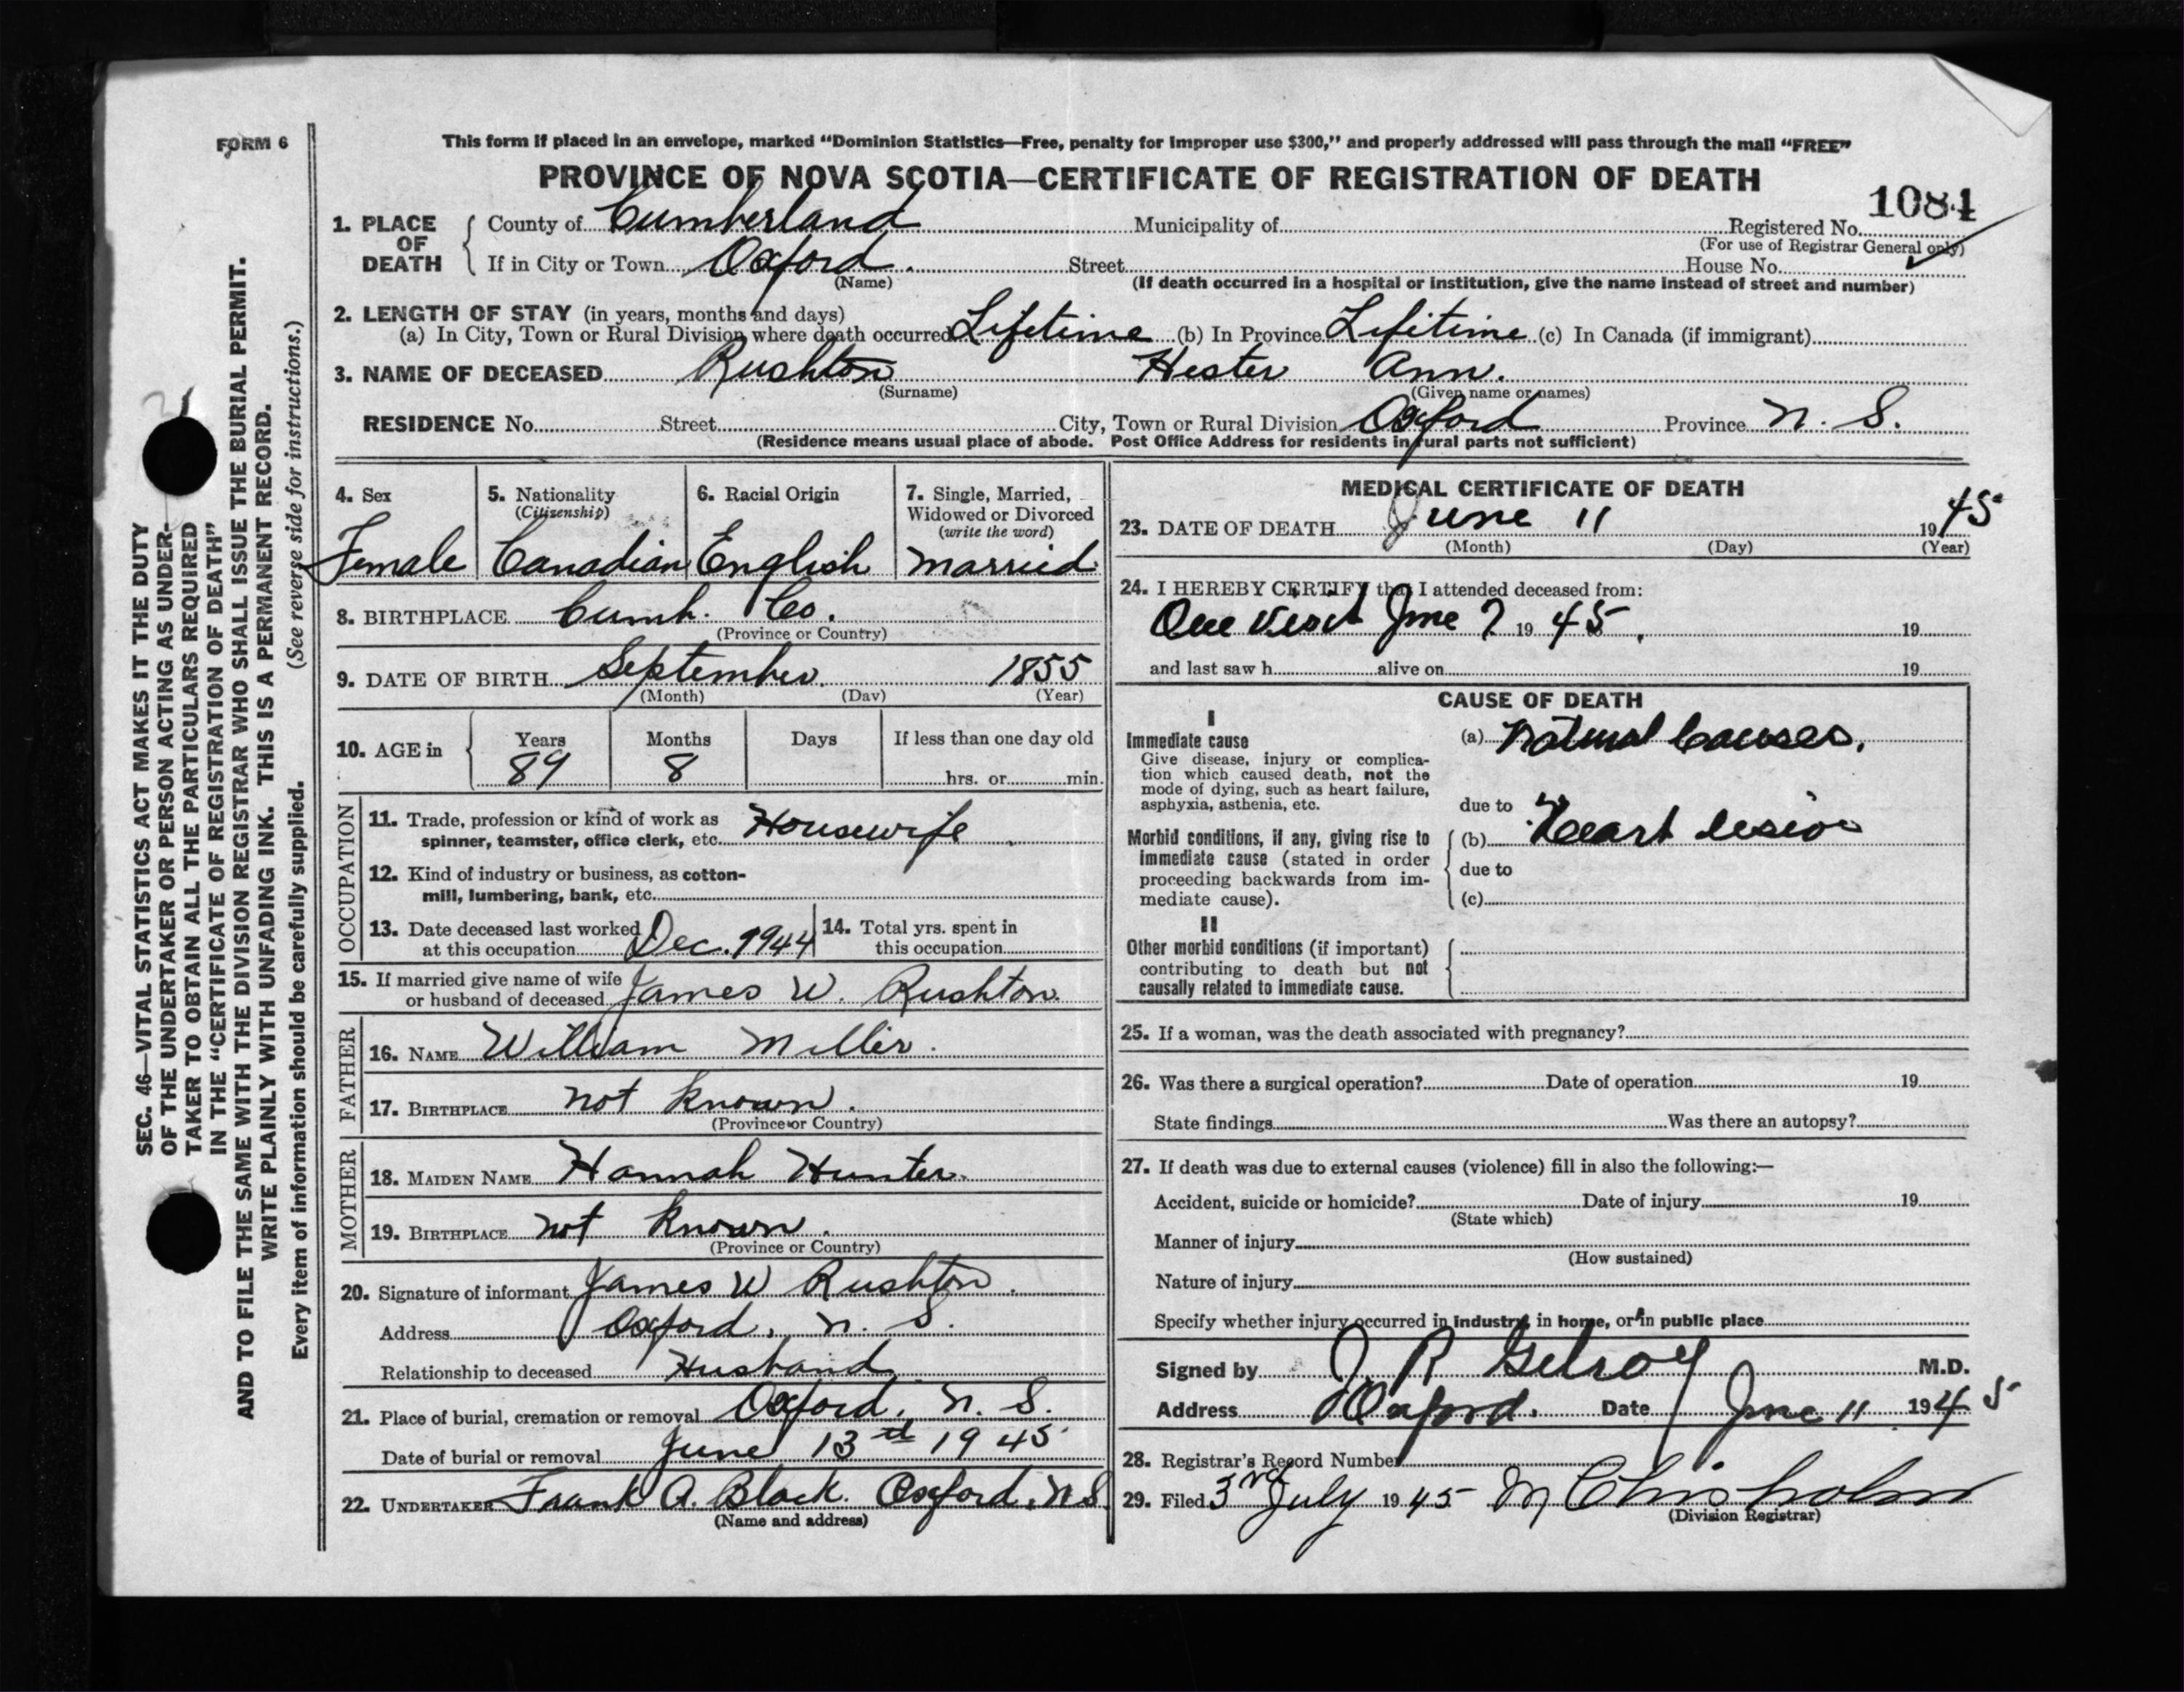 FORM 6
This form if placed in an envelope, marked "Dominion Statistics—Free, penalty for improper use $300," and properly addressed will pass through the mail "FREE"
PROVINCE OF NOVA SCOTIA—CERTIFICATE OF REGISTRATION OF DEATH
1084
1. PLACE OF DEATH County of Cumberland Municipality of Registered No.
(For use of Registrar General only)
If in City or Town Oxford. Street House No.
(Name) (If death occurred in a hospital or institution, give the name instead of street and number)
2. LENGTH OF STAY (in years, months and days)
(a) In City, Town or Rural Division where death occurred Lifetime (b) In Province Lifitime (c) In Canada (if immigrant)
3. NAME OF DECEASED Rushton Hester Ann.
(Surname) (Given name or names)
RESIDENCE No. Street City, Town or Rural Division Oxford Province N. S.
(Residence means usual place of abode. Post Office Address for residents in rural parts not sufficient)
4. Sex 5. Nationality (Citizenship) 6. Racial Origin 7. Single, Married, Widowed or Divorced (write the word)
Female Canadian English Married
8. BIRTHPLACE Cumb. Co.
(Province or Country)
9. DATE OF BIRTH September 1855
(Month) (Day) (Year)
10. AGE in Years Months Days If less than one day old
89 8 hrs. or min.
OCCUPATION
11. Trade, profession or kind of work as
spinner, teamster, office clerk, etc. Housewife
12. Kind of industry or business, as cotton-
mill, lumbering, bank, etc.
13. Date deceased last worked
at this occupation Dec. 1944
14. Total yrs. spent in
this occupation
15. If married give name of wife
or husband of deceased James W. Rushton
FATHER
16. NAME William Miller.
17. BIRTHPLACE not known.
(Province or Country)
MOTHER
18. MAIDEN NAME Hannah Hunter.
19. BIRTHPLACE not known.
(Province or Country)
20. Signature of informant James W Rushton.
Address Oxford, N. S.
Relationship to deceased Husband
21. Place of burial, cremation or removal Oxford, N. S.
Date of burial or removal June 13th 1945
22. UNDERTAKER Frank A. Black. Oxford, N.S.
(Name and address)
MEDICAL CERTIFICATE OF DEATH
23. DATE OF DEATH June 11 1945
(Month) (Day) (Year)
24. I HEREBY CERTIFY that I attended deceased from:
One visit June 7 1945, 19
and last saw h alive on 19
CAUSE OF DEATH
I
Immediate cause
Give disease, injury or complica-
tion which caused death, not the
mode of dying, such as heart failure,
asphyxia, asthenia, etc.
(a) Natural Causes.
due to
Morbid conditions, if any, giving rise to
immediate cause (stated in order
proceeding backwards from im-
mediate cause).
(b) Heart lesion
due to
(c)
II
Other morbid conditions (if important)
contributing to death but not
causally related to immediate cause.
25. If a woman, was the death associated with pregnancy?
26. Was there a surgical operation? Date of operation 19
State findings Was there an autopsy?
27. If death was due to external causes (violence) fill in also the following:—
Accident, suicide or homicide? Date of injury 19
(State which)
Manner of injury
(How sustained)
Nature of injury
Specify whether injury occurred in industry, in home, or in public place
Signed by J R Gilroy M.D.
Address Oxford. Date June 11 1945
28. Registrar's Record Number
29. Filed 3rd July 1945 M Chisholm
(Division Registrar)
SEC. 46—VITAL STATISTICS ACT MAKES IT THE DUTY
OF THE UNDERTAKER OR PERSON ACTING AS UNDER-
TAKER TO OBTAIN ALL THE PARTICULARS REQUIRED
IN THE "CERTIFICATE OF REGISTRATION OF DEATH"
AND TO FILE THE SAME WITH THE DIVISION REGISTRAR WHO SHALL ISSUE THE BURIAL PERMIT.
WRITE PLAINLY WITH UNFADING INK. THIS IS A PERMANENT RECORD.
Every item of information should be carefully supplied. (See reverse side for instructions.)